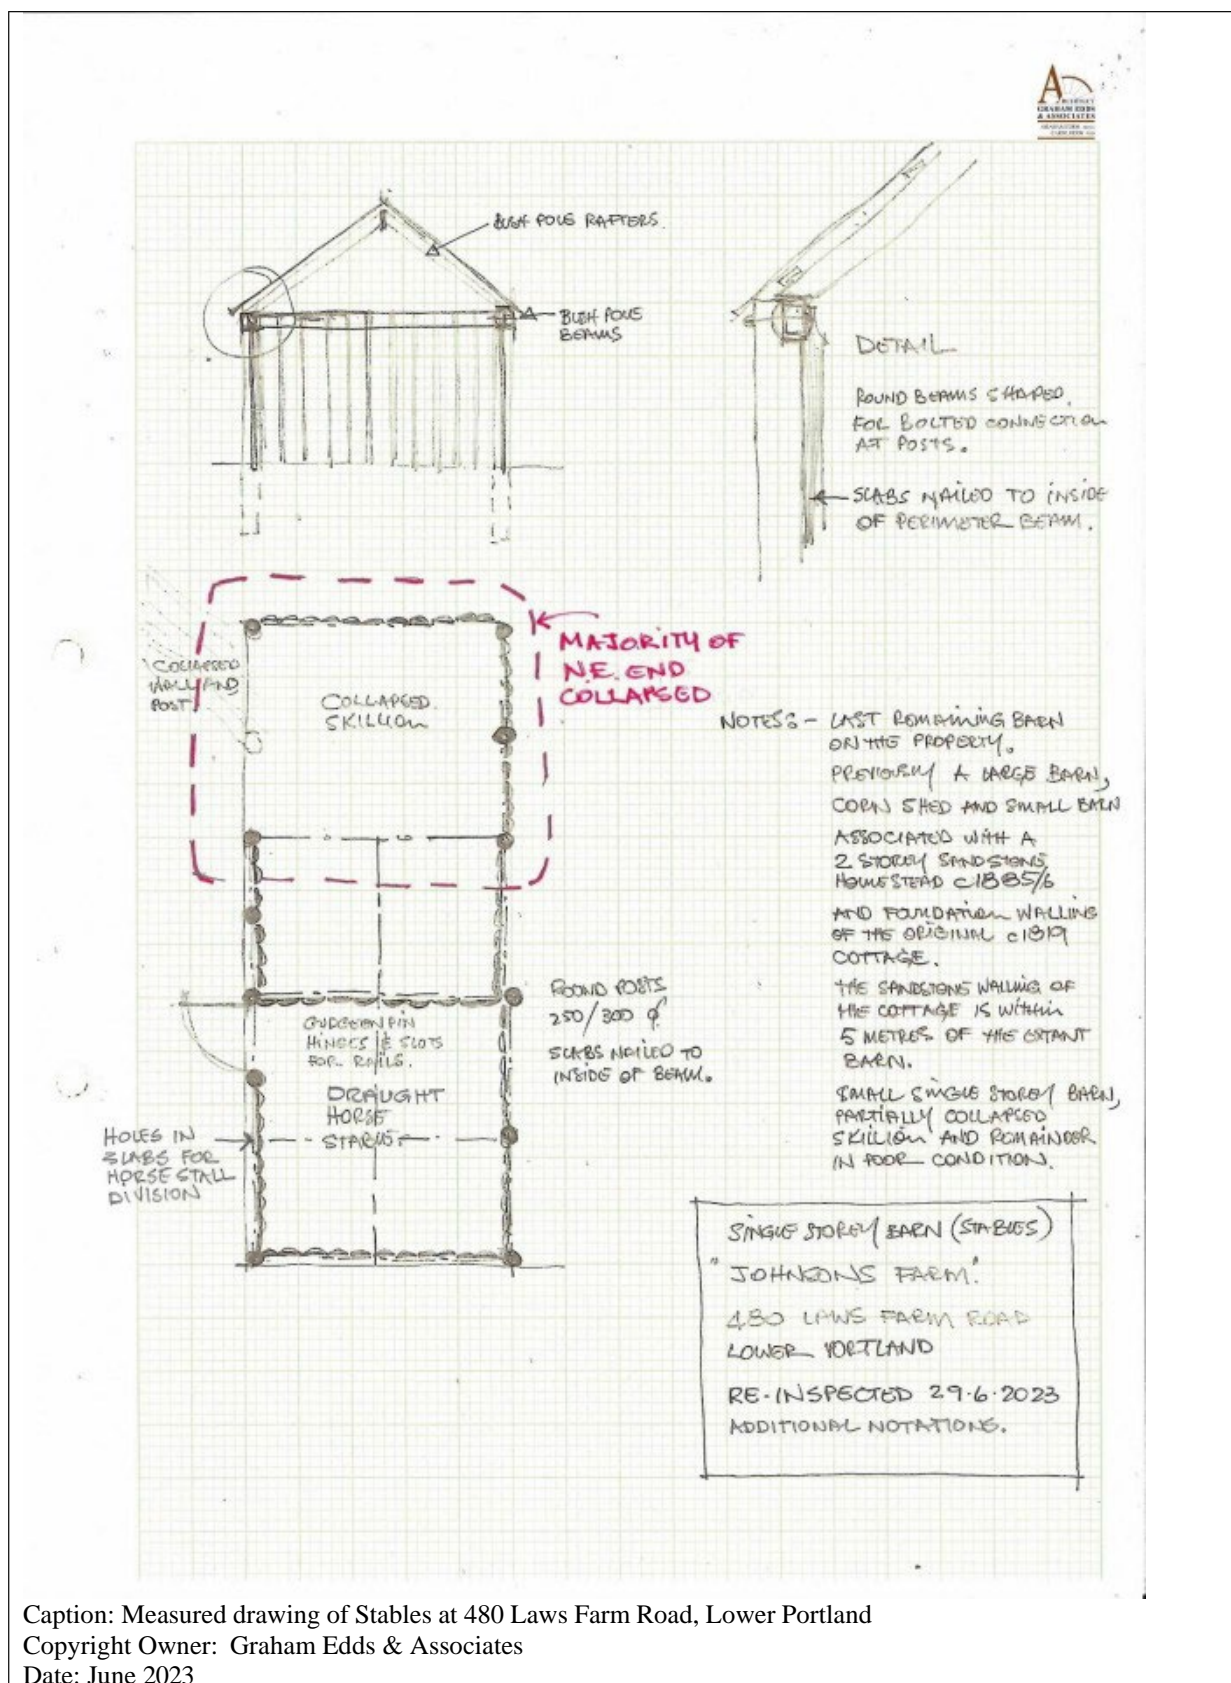 GRAHAM EDDS
& ASSOCIATES
BUSH POLE RAFTERS.
BUSH POLE
BEAMS
DETAIL
ROUND BEAMS SHAPED.
FOR BOLTED CONNECTION
AT POSTS.
SLABS NAILED TO INSIDE
OF PERIMETER BEAM.
MAJORITY OF
N.E. END
COLLAPSED
COLLAPSED
WALL AND
POST
COLLAPSED.
SKILLION
NOTES:- LAST REMAINING BARN
ON THE PROPERTY.
PREVIOUSLY A LARGE BARN,
CORN SHED AND SMALL BARN
ASSOCIATED WITH A
2 STOREY SANDSTONE
HOMESTEAD c1885/6
AND FOUNDATION WALLING
OF THE ORIGINAL c1819
COTTAGE.
THE SANDSTONE WALLING OF
THE COTTAGE IS WITHIN
5 METRES OF THE EXTANT
BARN.
SMALL SINGLE STOREY BARN,
PARTIALLY COLLAPSED
SKILLION AND REMAINDER
IN POOR CONDITION.
ROUND POSTS
250/300 φ
SLABS NAILED TO
INSIDE OF BEAM.
GUDGEON PIN
HINGES & SLOTS
FOR RAILS.
DRAUGHT
HORSE
STABLE
HOLES IN
SLABS FOR
HORSE STALL
DIVISION
SINGLE STOREY BARN (STABLES)
"JOHNSONS FARM".
480 LAWS FARM ROAD
LOWER PORTLAND
RE-INSPECTED 29.6.2023
ADDITIONAL NOTATIONS.
Caption: Measured drawing of Stables at 480 Laws Farm Road, Lower Portland
Copyright Owner: Graham Edds & Associates
Date: June 2023